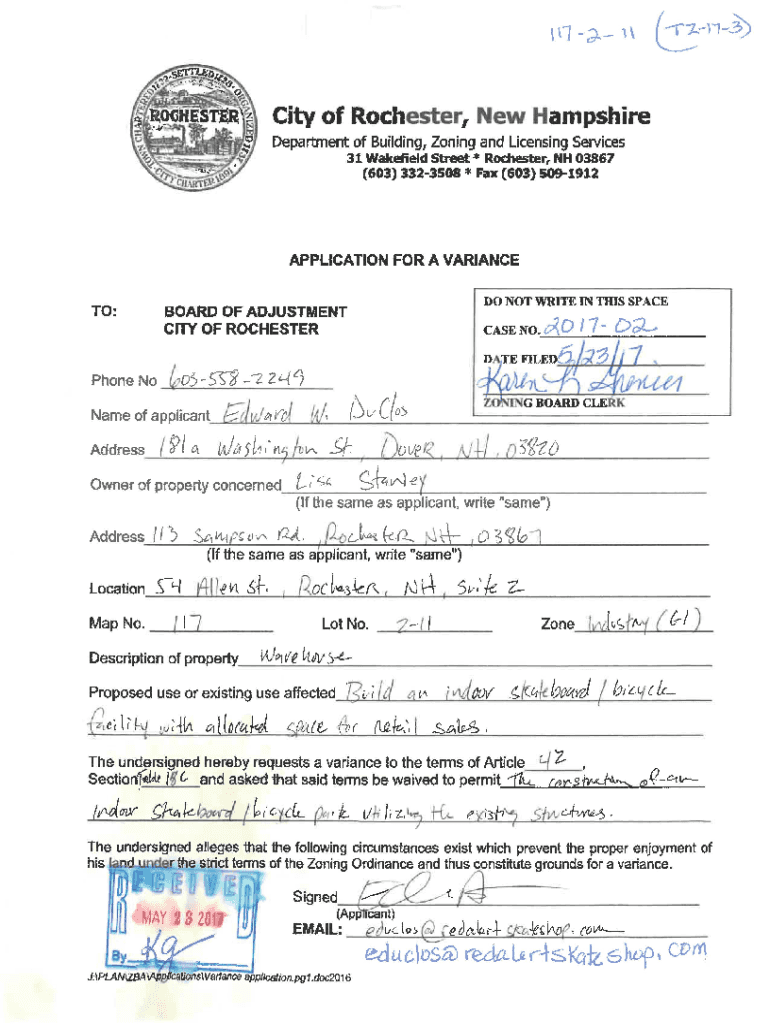 117-2-11 (TZ-17-3)
ROCHESTER
City of Rochester, New Hampshire
Department of Building, Zoning and Licensing Services
31 Wakefield Street * Rochester, NH 03867
(603) 332-3508 * Fax (603) 509-1912
APPLICATION FOR A VARIANCE
TO: BOARD OF ADJUSTMENT
CITY OF ROCHESTER
DO NOT WRITE IN THIS SPACE
CASE NO. 2017-02
DATE FILED 5/23/17
Karen Spencer
ZONING BOARD CLERK
Phone No 603-558-2249
Name of applicant Edward W. DuClos
Address 181a Washington St., Dover, NH, 03820
Owner of property concerned Lisa Stanley
(If the same as applicant, write "same")
Address 113 Sampson Rd. , Rochester NH , 03867
(If the same as applicant, write "same")
Location 54 Allen St. , Rochester, NH, Suite 2
Map No. 117 Lot No. 2-11 Zone Industry (GI)
Description of property Warehouse
Proposed use or existing use affected Build an indoor skateboard / bicycle
facility with allocated space for retail sales.
The undersigned hereby requests a variance to the terms of Article 42 ,
Section Table 18C and asked that said terms be waived to permit The construction of an
indoor skateboard / bicycle park utilizing the existing structures.
The undersigned alleges that the following circumstances exist which prevent the proper enjoyment of
his land under the strict terms of the Zoning Ordinance and thus constitute grounds for a variance.
RECEIVED
MAY 23 2017
By Kg
Signed
(Applicant)
EMAIL: educlos@redalertskateshop.com
educlos@redalertskateshop.com
J:\PLAN\ZBA\Applications\Variance application.pg1.doc2016